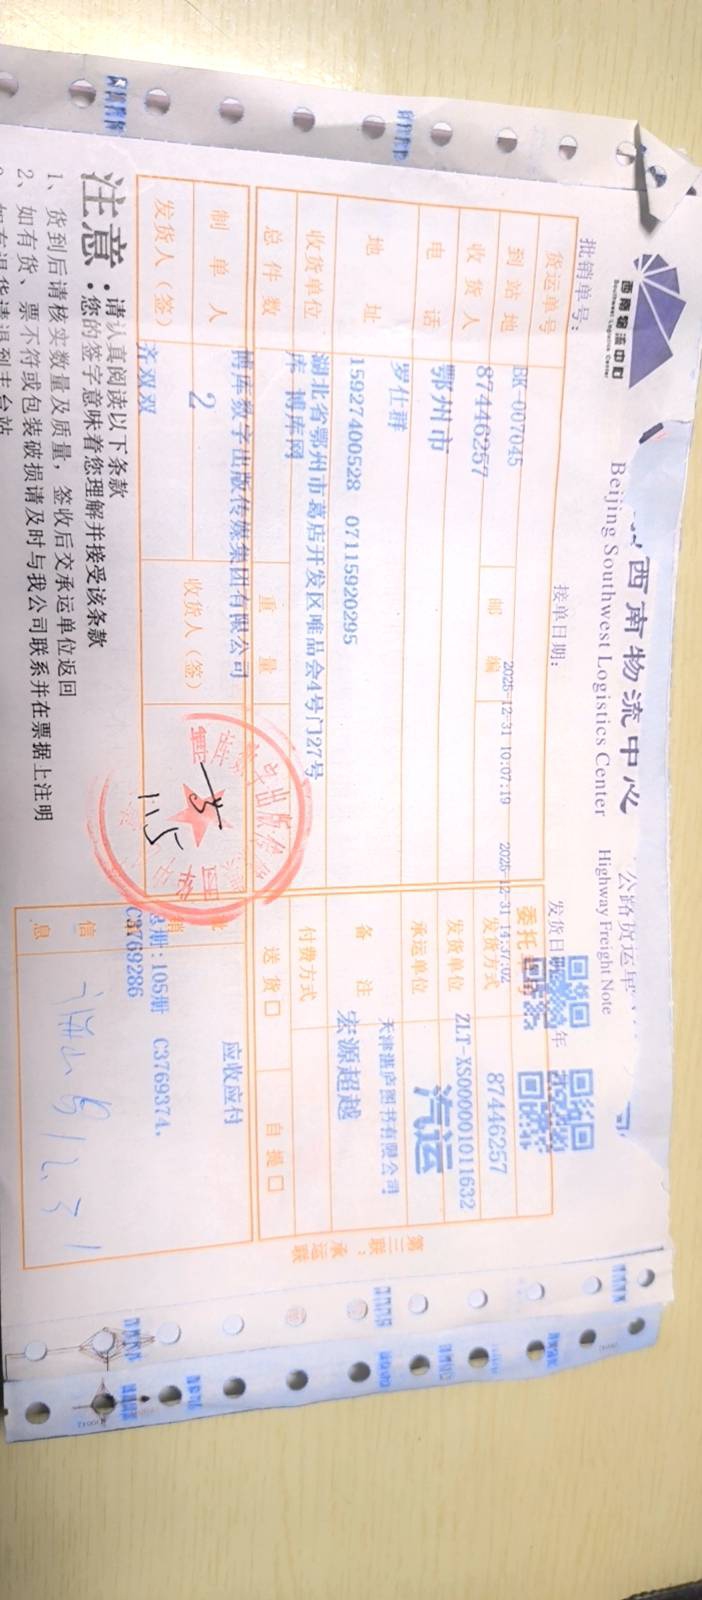 西南物流中心
Southwest Logistics Center
西南物流中心
公路货运单
Beijing Southwest Logistics Center
Highway Freight Note
批销单号：
接单日期：
2025-12-31 10:07:19
2025-12-31 14:37:02
发货日期
年
货运单号
BK-007045
87446257
委托
到站地
鄂州市
邮编
发货方式
87446257
收货人
罗仕群
发货单位
ZLT-XS000001011632
汽运
电话
15927400528 07115920295
承运单位
天津湛庐图书有限公司
地址
湖北省鄂州市葛店开发区唯品会4号门27号
库 博库网
备注
宏源超越
收货单位
博库数字出版传媒集团有限公司
付费方式
总件数
2
重量
送货□
自提□
制单人
齐双双
收货人（签）
应收应付
发货人（签）
总册:105册 C3769374,
C3769286
信息
12.31
第三联：承运联
注意：
请认真阅读以下条款
您的签字意味着您理解并接受该条款
1、货到后请核实数量及质量，签收后交承运单位返回
2、如有货、票不符或包装破损请及时与我公司联系并在票据上注明